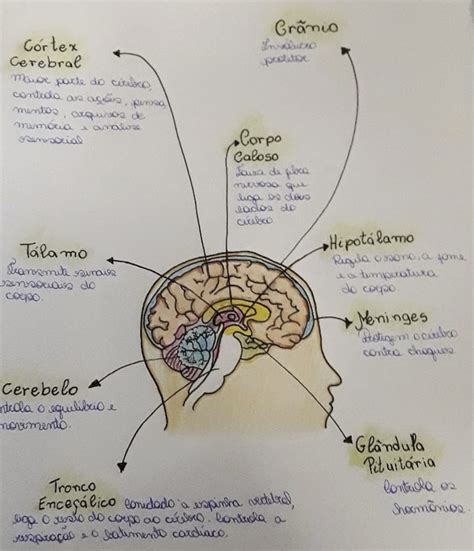 Córtex
Cerebral
Maior parte do cérebro,
controla as ações, pensa
mentos, arquivos de
memória e análise
sensorial
Crânio
Invólucro
protetor
Corpo
Caloso
Faixa de fibra
nervosa que
liga os dois
lados do
cérebro
Tálamo
Transmite sinais
sensoriais do
corpo.
Hipotálamo
Regula o sono, a fome
e a temperatura
do corpo.
Meninges
Protegem o cérebro
contra choques
Cerebelo
controla o equilíbrio e
movimento.
Glândula
Pituitária
Controla os
hormônios.
Tronco
Encefálico conectado à espinha vertebral,
liga o resto do corpo ao cérebro. Controla a
respiração e o batimento cardíaco.